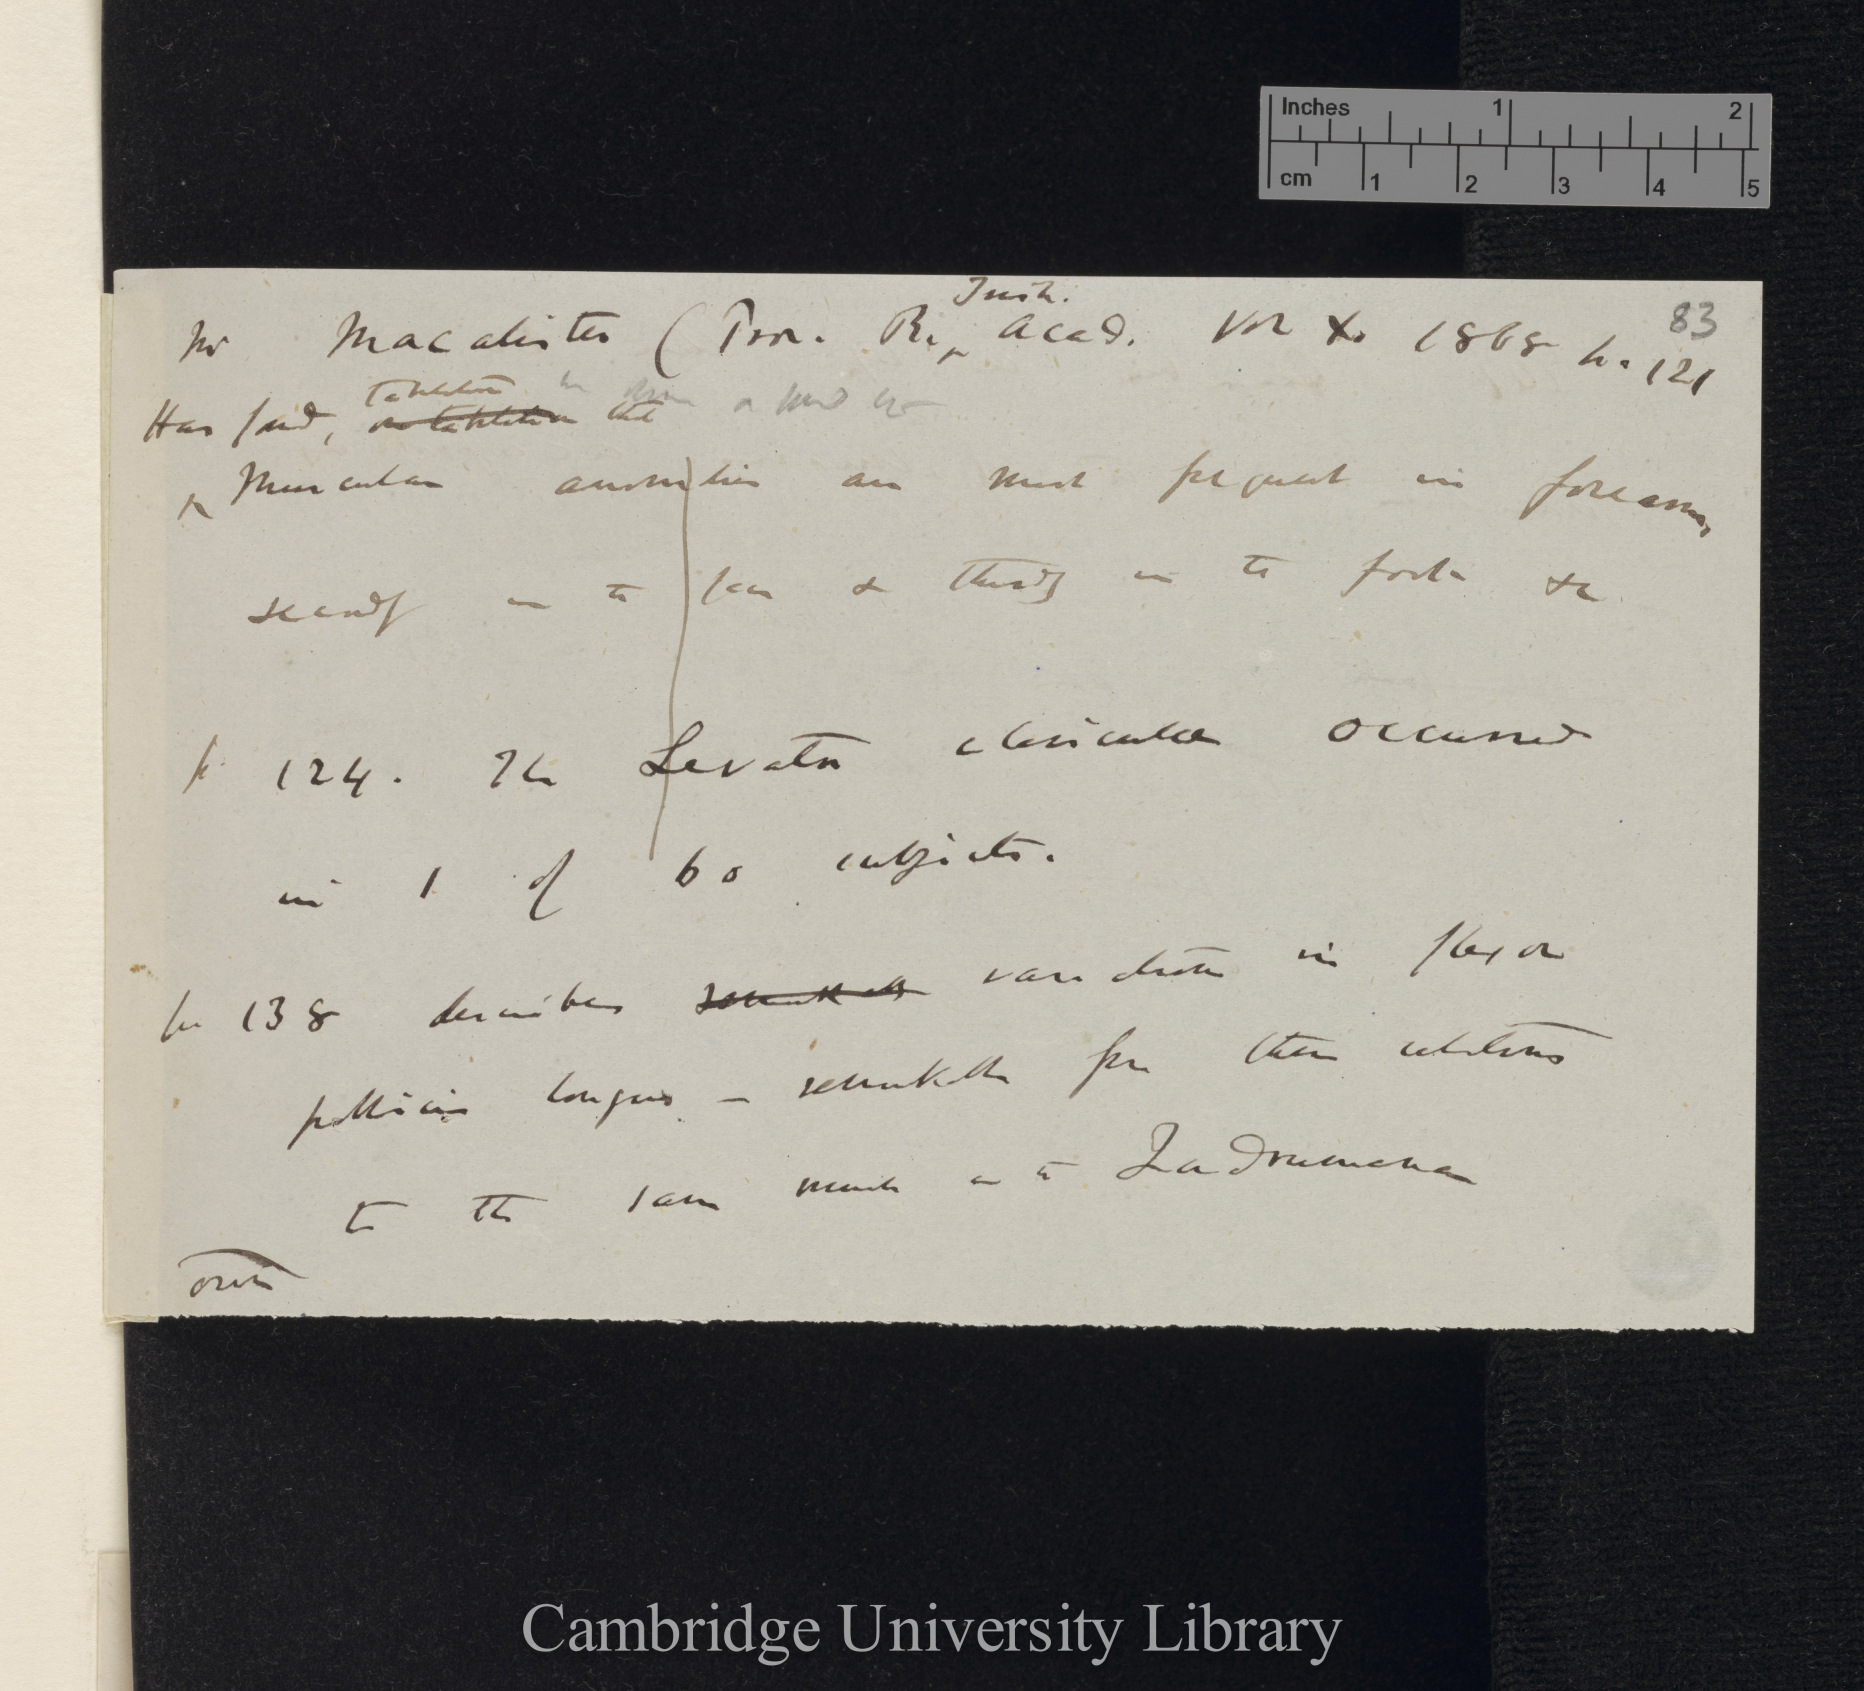 Inches 1 2
cm 1 2 3 4 5
83
Irish.
Mr Macalister (Proc. R. Acad. Vol X. 1868 p. 121
tabulated
Has found, on tabulation that
Muscular anomalies are most frequent in forearms,
secondly in the face & thirdly in the foot &c
p. 124. The Levator claviculae occurred
in 1 of 60 subjects.
p. 138 describes remarkable variations in flexor
pollicis longus — remarkable from their relations
to the same muscle in the Quadrumana
over
Cambridge University Library